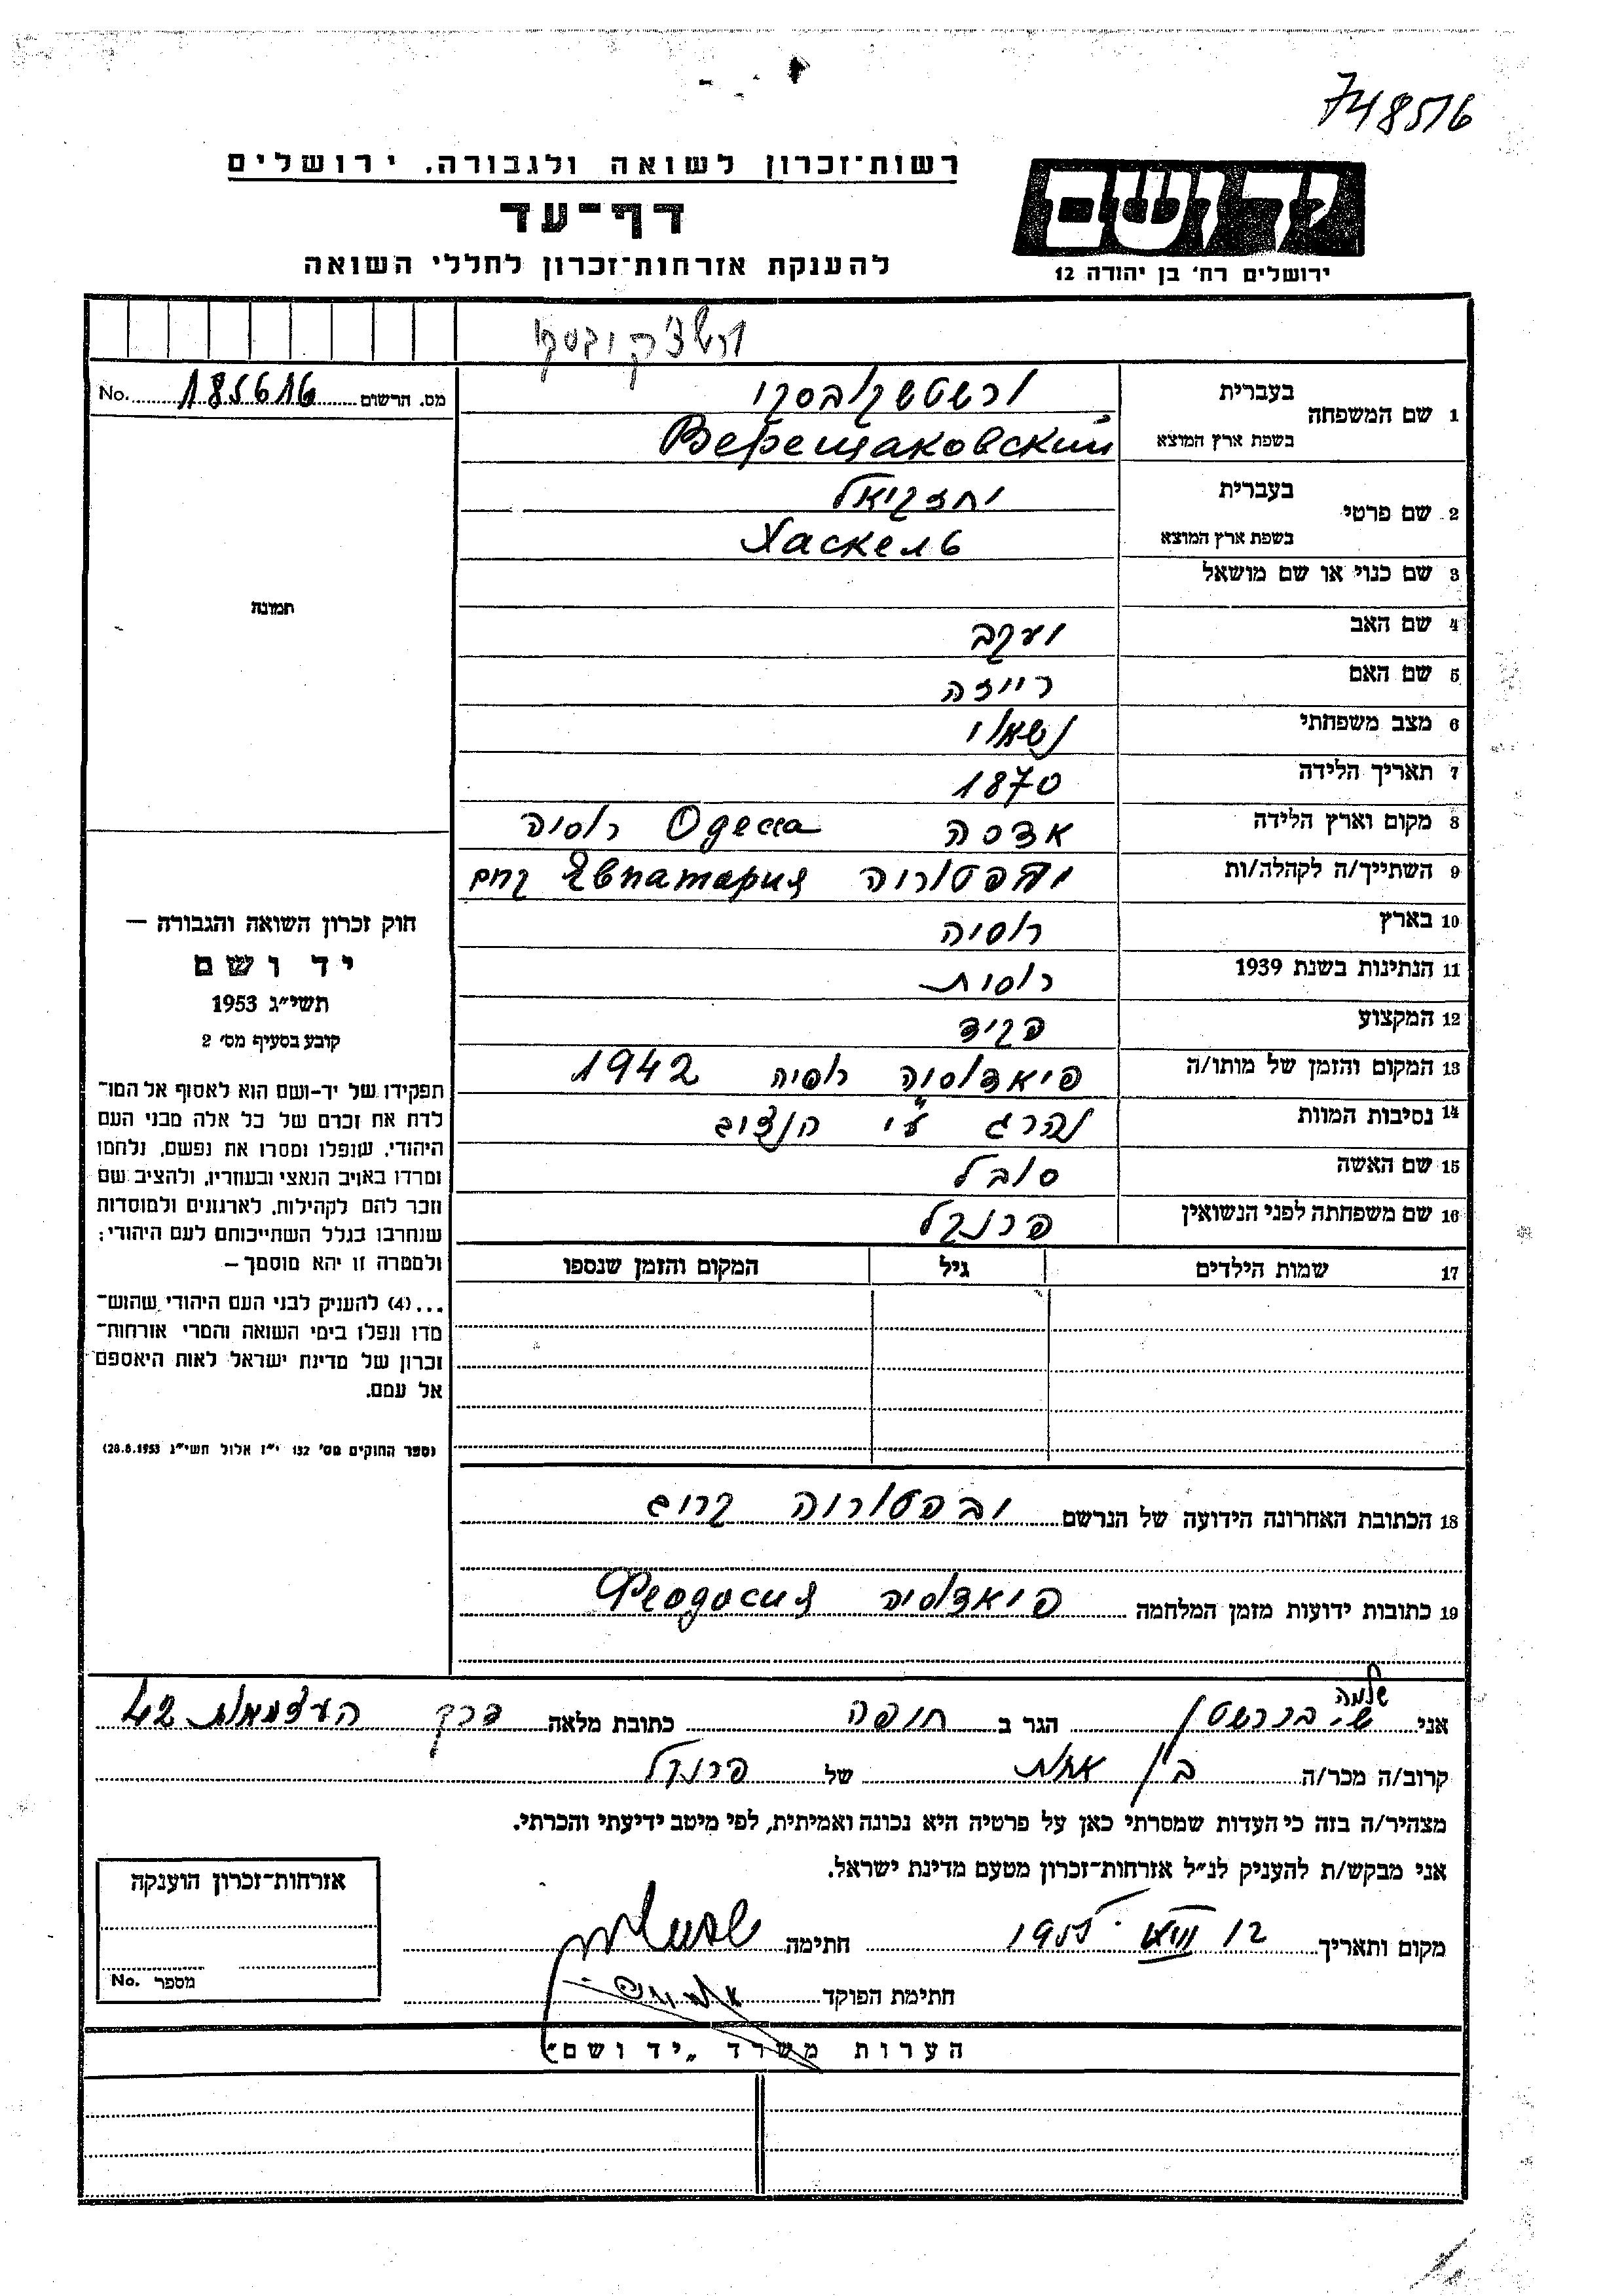 748516
רשות־זכרון לשואה ולגבורה, ירושלים
יד ושם
דף־עד
להענקת אזרחות־זכרון לחללי השואה
ירושלים רח' בן יהודה 12
מס. הרשום 185616 No.
1 שם המשפחה
בעברית ורשטשקובסקי
בשפת ארץ המוצא Верещаковский
2 שם פרטי
בעברית יחזקיאל
בשפת ארץ המוצא Хаскель
3 שם כנוי או שם מושאל
4 שם האב יעקב
5 שם האם רייזה
6 מצב משפחתי נשאוי
7 תאריך הלידה 1870
8 מקום וארץ הלידה אדסה Одесса רוסיה
9 השתייך/ה לקהלה/ות יבפטוריה Евпатария קרים
10 בארץ רוסיה
11 הנתינות בשנת 1939 רוסית
12 המקצוע פקיד
13 המקום והזמן של מותו/ה פיאדוסיה רוסיה 1942
14 נסיבות המוות נהרג ע"י הנצים
15 שם האשה סובל
16 שם משפחתה לפני הנשואין פרנקל
17 שמות הילדים גיל המקום והזמן שנספו
18 הכתובת האחרונה הידועה של הנרשם יבפטוריה קרים
19 כתובות ידועות מזמן המלחמה פיאדוסיה Феодосия
תמונה
חוק זכרון השואה והגבורה –
יד ושם
תשי"ג 1953
קובע בסעיף מס' 2
תפקידו של יד-ושם הוא לאסוף אל המו־
לדת את זכרם של כל אלה מבני העם
היהודי, שנפלו ומסרו את נפשם, נלחמו
ומרדו באויב הנאצי ובעוזריו, ולהציב שם
וזכר להם לקהילות, לארגונים ולמוסדות
שנחרבו בגלל השתייכותם לעם היהודי;
ולמטרה זו יהא מוסמך –
...(4) להעניק לבני העם היהודי שהוש־
מדו ונפלו בימי השואה והמרי אזרחות־
זכרון של מדינת ישראל לאות היאספם
אל עמם.
(ספר החוקים מס' 132 י"ז אלול תשי"ג 28.8.1953)
שלמה
אני ש. ברנשטין הגר ב חיפה כתובת מלאה דרך העצמאות 42
קרוב/ה מכר/ה בן אחות של פרנקל
מצהיר/ה בזה כי העדות שמסרתי כאן על פרטיה היא נכונה ואמיתית, לפי מיטב ידיעתי והכרתי.
אני מבקש/ת להעניק לנ"ל אזרחות־זכרון מטעם מדינת ישראל.
מקום ותאריך 12 VIII 1955 חתימה
חתימת הפוקד
אזרחות־זכרון הוענקה
מספר No.
הערות משרד „יד ושם"